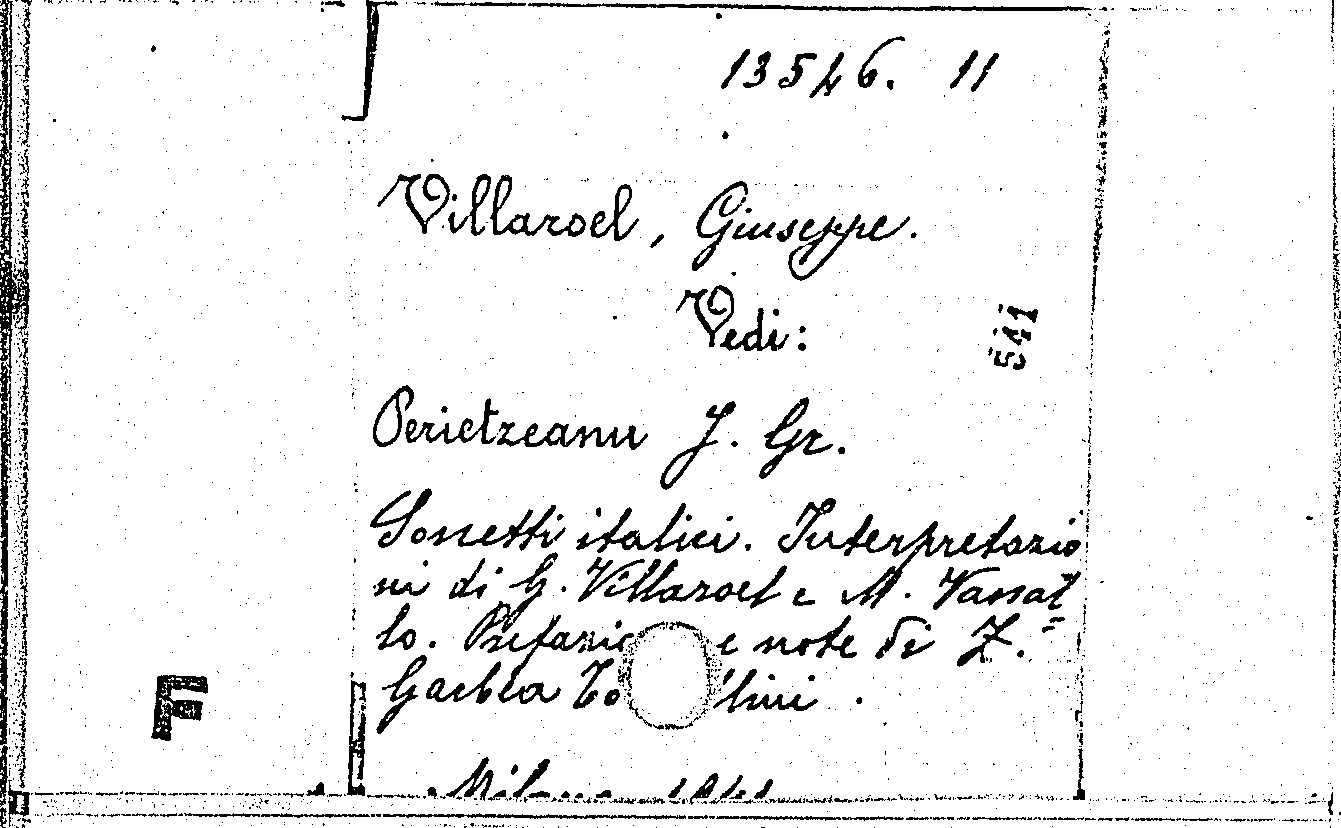 13546. 11
Villaroel, Giuseppe.
Vedi:
541
Perietzeanu J. Gr.
Sonetti italici. Interpretazio
ni di G. Villaroel e M. Vassal
lo. e note di Z.
Garbea
F
Milano